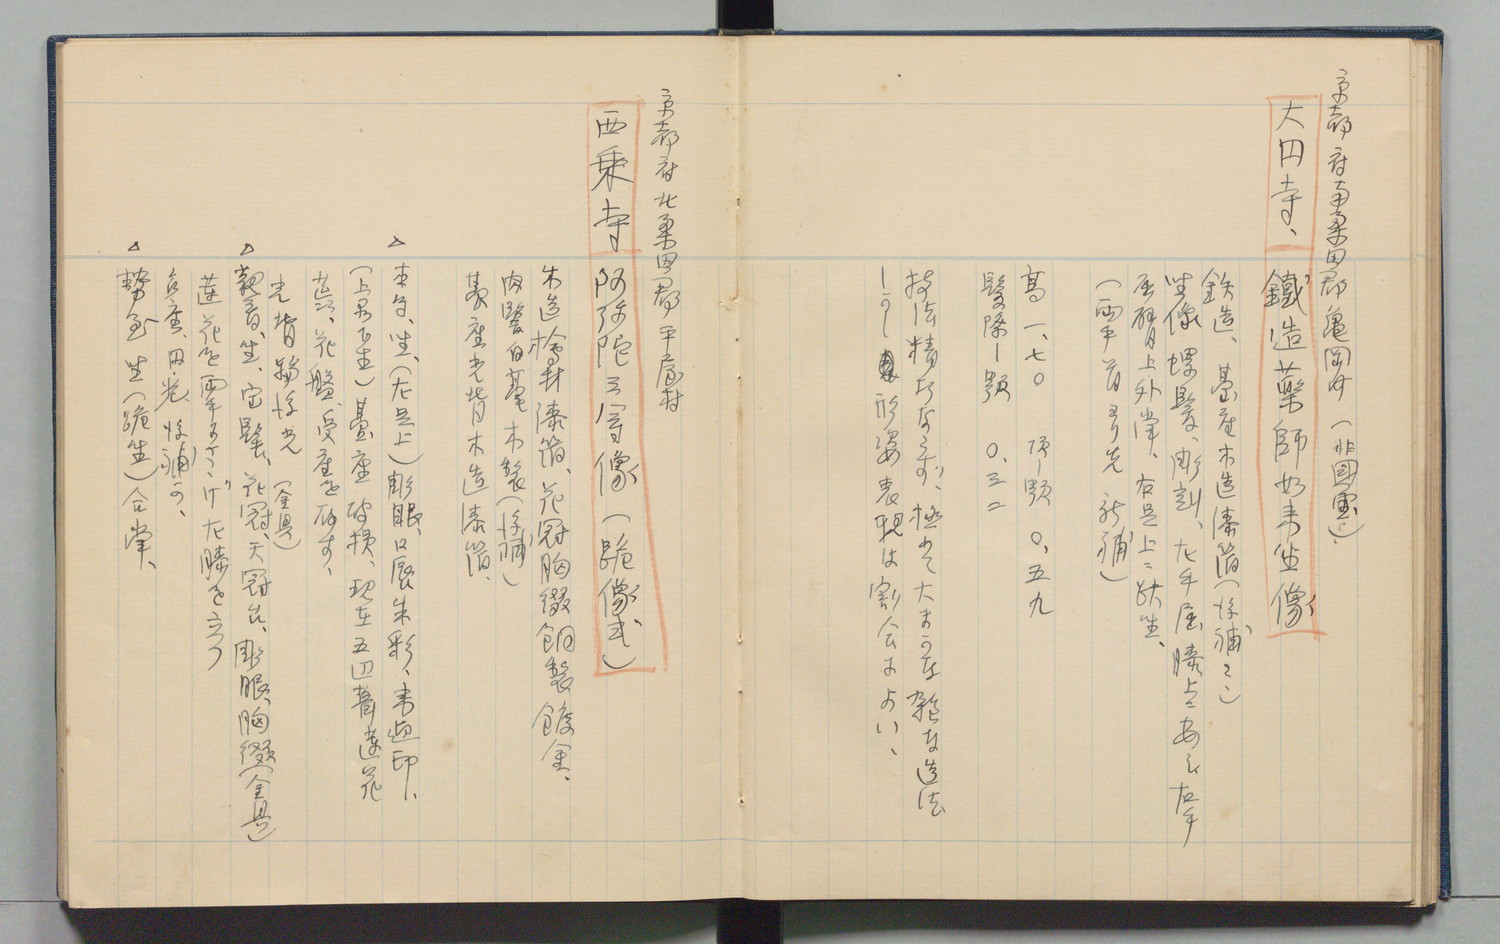 京都府南桑田郡亀岡町(非國宝)
大円寺、鐵造藥師如来坐像
鉄造、臺座木造漆箔(後補)
坐像 螺髪、彫刻、左手屈膝上に安じ右手
屈臂上外掌、右足上に趺坐、
(両手首より先 新補)
高 一、七〇 頂―顎 〇、五九
髪際―顎 〇、三二
技法精巧ならず、極めて大まかな雑な造法
形姿表現は割合によい、
京都府北桑田郡平屋村
西乗寺 阿弥陀三尊像(跪像式)
木造檜材漆箔、花冠胸綴飾銅製鍍金、
肉髻白毫木製(後補)
臺座光背木造漆箔、
△ 本尊、坐、(右足上)彫眼、口唇朱彩、来迎印、
(上品下生)臺座破損、現在五四葺蓮花
花盤、受座を存す、
光背輪後光(金具)
△ 観音、坐、宝髻、花冠、天冠台、彫眼、胸綴(金具)
蓮花を両手にささげ左膝を立つ
台座、円光、後補か、
△ 勢至 坐(跪坐)合掌、